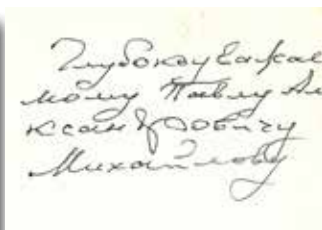 Глубокоуважае
мому Павлу Але
ксандровичу
Михайлову